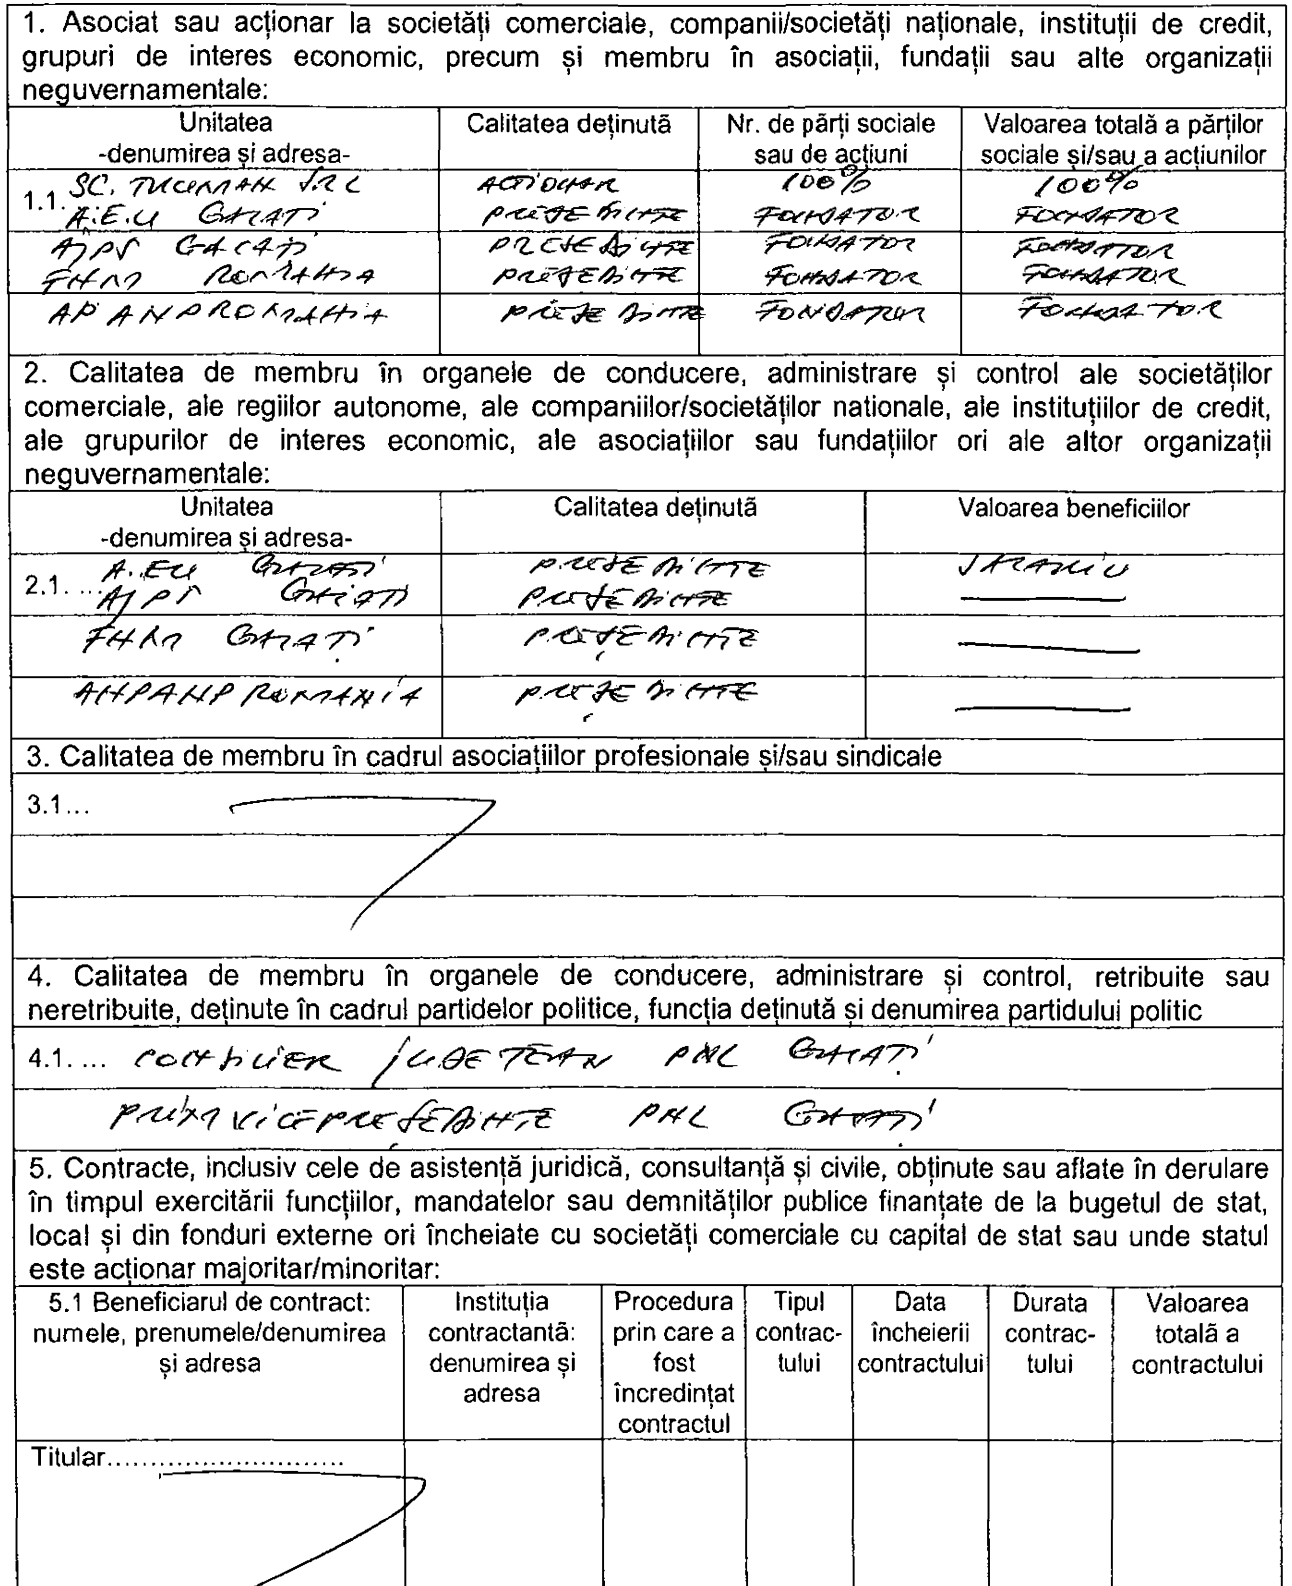 1. Asociat sau acționar la societăți comerciale, companii/societăți naționale, instituții de credit,
grupuri de interes economic, precum și membru în asociații, fundații sau alte organizații
neguvernamentale:
Unitatea
-denumirea și adresa-
Calitatea deținută
Nr. de părți sociale
sau de acțiuni
Valoarea totală a părților
sociale și/sau a acțiunilor
1.1. SC. TUCOMAN SRL ACȚIONAR 100% 100%
A.E.U GALAȚI PREȘEDINTE FONDATOR FONDATOR
AJPS GALAȚI PREȘEDINTE FONDATOR FONDATOR
FHM ROMANIA PREȘEDINTE FONDATOR FONDATOR
ROMANIA PREȘEDINTE FONDATOR FONDATOR
2. Calitatea de membru în organele de conducere, administrare și control ale societăților
comerciale, ale regiilor autonome, ale companiilor/societăților nationale, ale instituțiilor de credit,
ale grupurilor de interes economic, ale asociațiilor sau fundațiilor ori ale altor organizații
neguvernamentale:
Unitatea
-denumirea și adresa-
Calitatea deținută
Valoarea beneficiilor
2.1. ... A.EU GALAȚI PREȘEDINTE SALARIU
AJPS GALAȚI PREȘEDINTE
FHM GALAȚI PREȘEDINTE
ROMANIA PREȘEDINTE
3. Calitatea de membru în cadrul asociațiilor profesionale și/sau sindicale
3.1...
4. Calitatea de membru în organele de conducere, administrare și control, retribuite sau
neretribuite, deținute în cadrul partidelor politice, funcția deținută și denumirea partidului politic
4.1. ... CONSILIER JUDEȚEAN PNL GALAȚI
PRIM VICEPREȘEDINTE PNL GALAȚI
5. Contracte, inclusiv cele de asistență juridică, consultanță și civile, obținute sau aflate în derulare
în timpul exercitării funcțiilor, mandatelor sau demnităților publice finanțate de la bugetul de stat,
local și din fonduri externe ori încheiate cu societăți comerciale cu capital de stat sau unde statul
este acționar majoritar/minoritar:
5.1 Beneficiarul de contract:
numele, prenumele/denumirea
și adresa
Instituția
contractantă:
denumirea și
adresa
Procedura
prin care a
fost
încredințat
contractul
Tipul
contrac-
tului
Data
încheierii
contractului
Durata
contrac-
tului
Valoarea
totală a
contractului
Titular............................